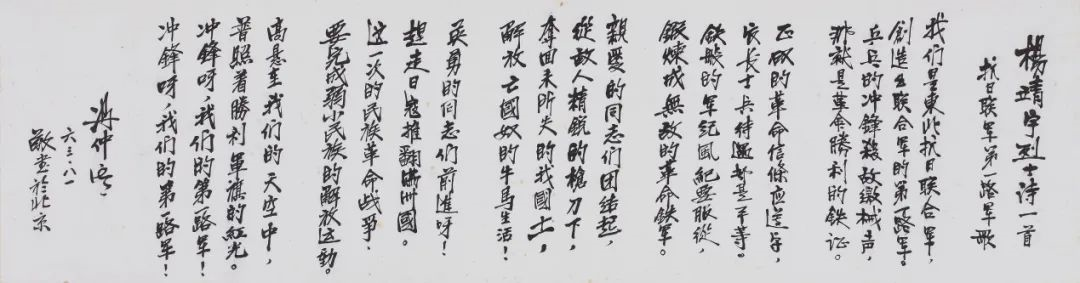 楊靖宇烈士诗一首
抗日联军第一路军歌
我们是東北抗日联合军，
创造出联合军的第一路军。
乒乓的冲鋒殺敌缴械声，
那就是革命勝利的铁证。
正确的革命信條应遵守，
官长士兵待遇都是平等。
铁般的军纪風紀要服從，
鍛煉成無敌的革命鉄军。
親爱的同志们团结起，
從敌人精銳的槍刀下，
奪回来所失的我國土，
解放亡國奴的牛馬生活！
英勇的同志们前進呀！
趕走日寇推翻满洲國。
这一次的民族革命战争，
要完成弱小民族的解放运动。
高悬在我们的天空中，
普照着勝利军旗的紅光。
冲鋒呀，我们的第一路军！
冲鋒呀，我们的第一路军！
馮仲雲
六三·八·一
敬書於北京